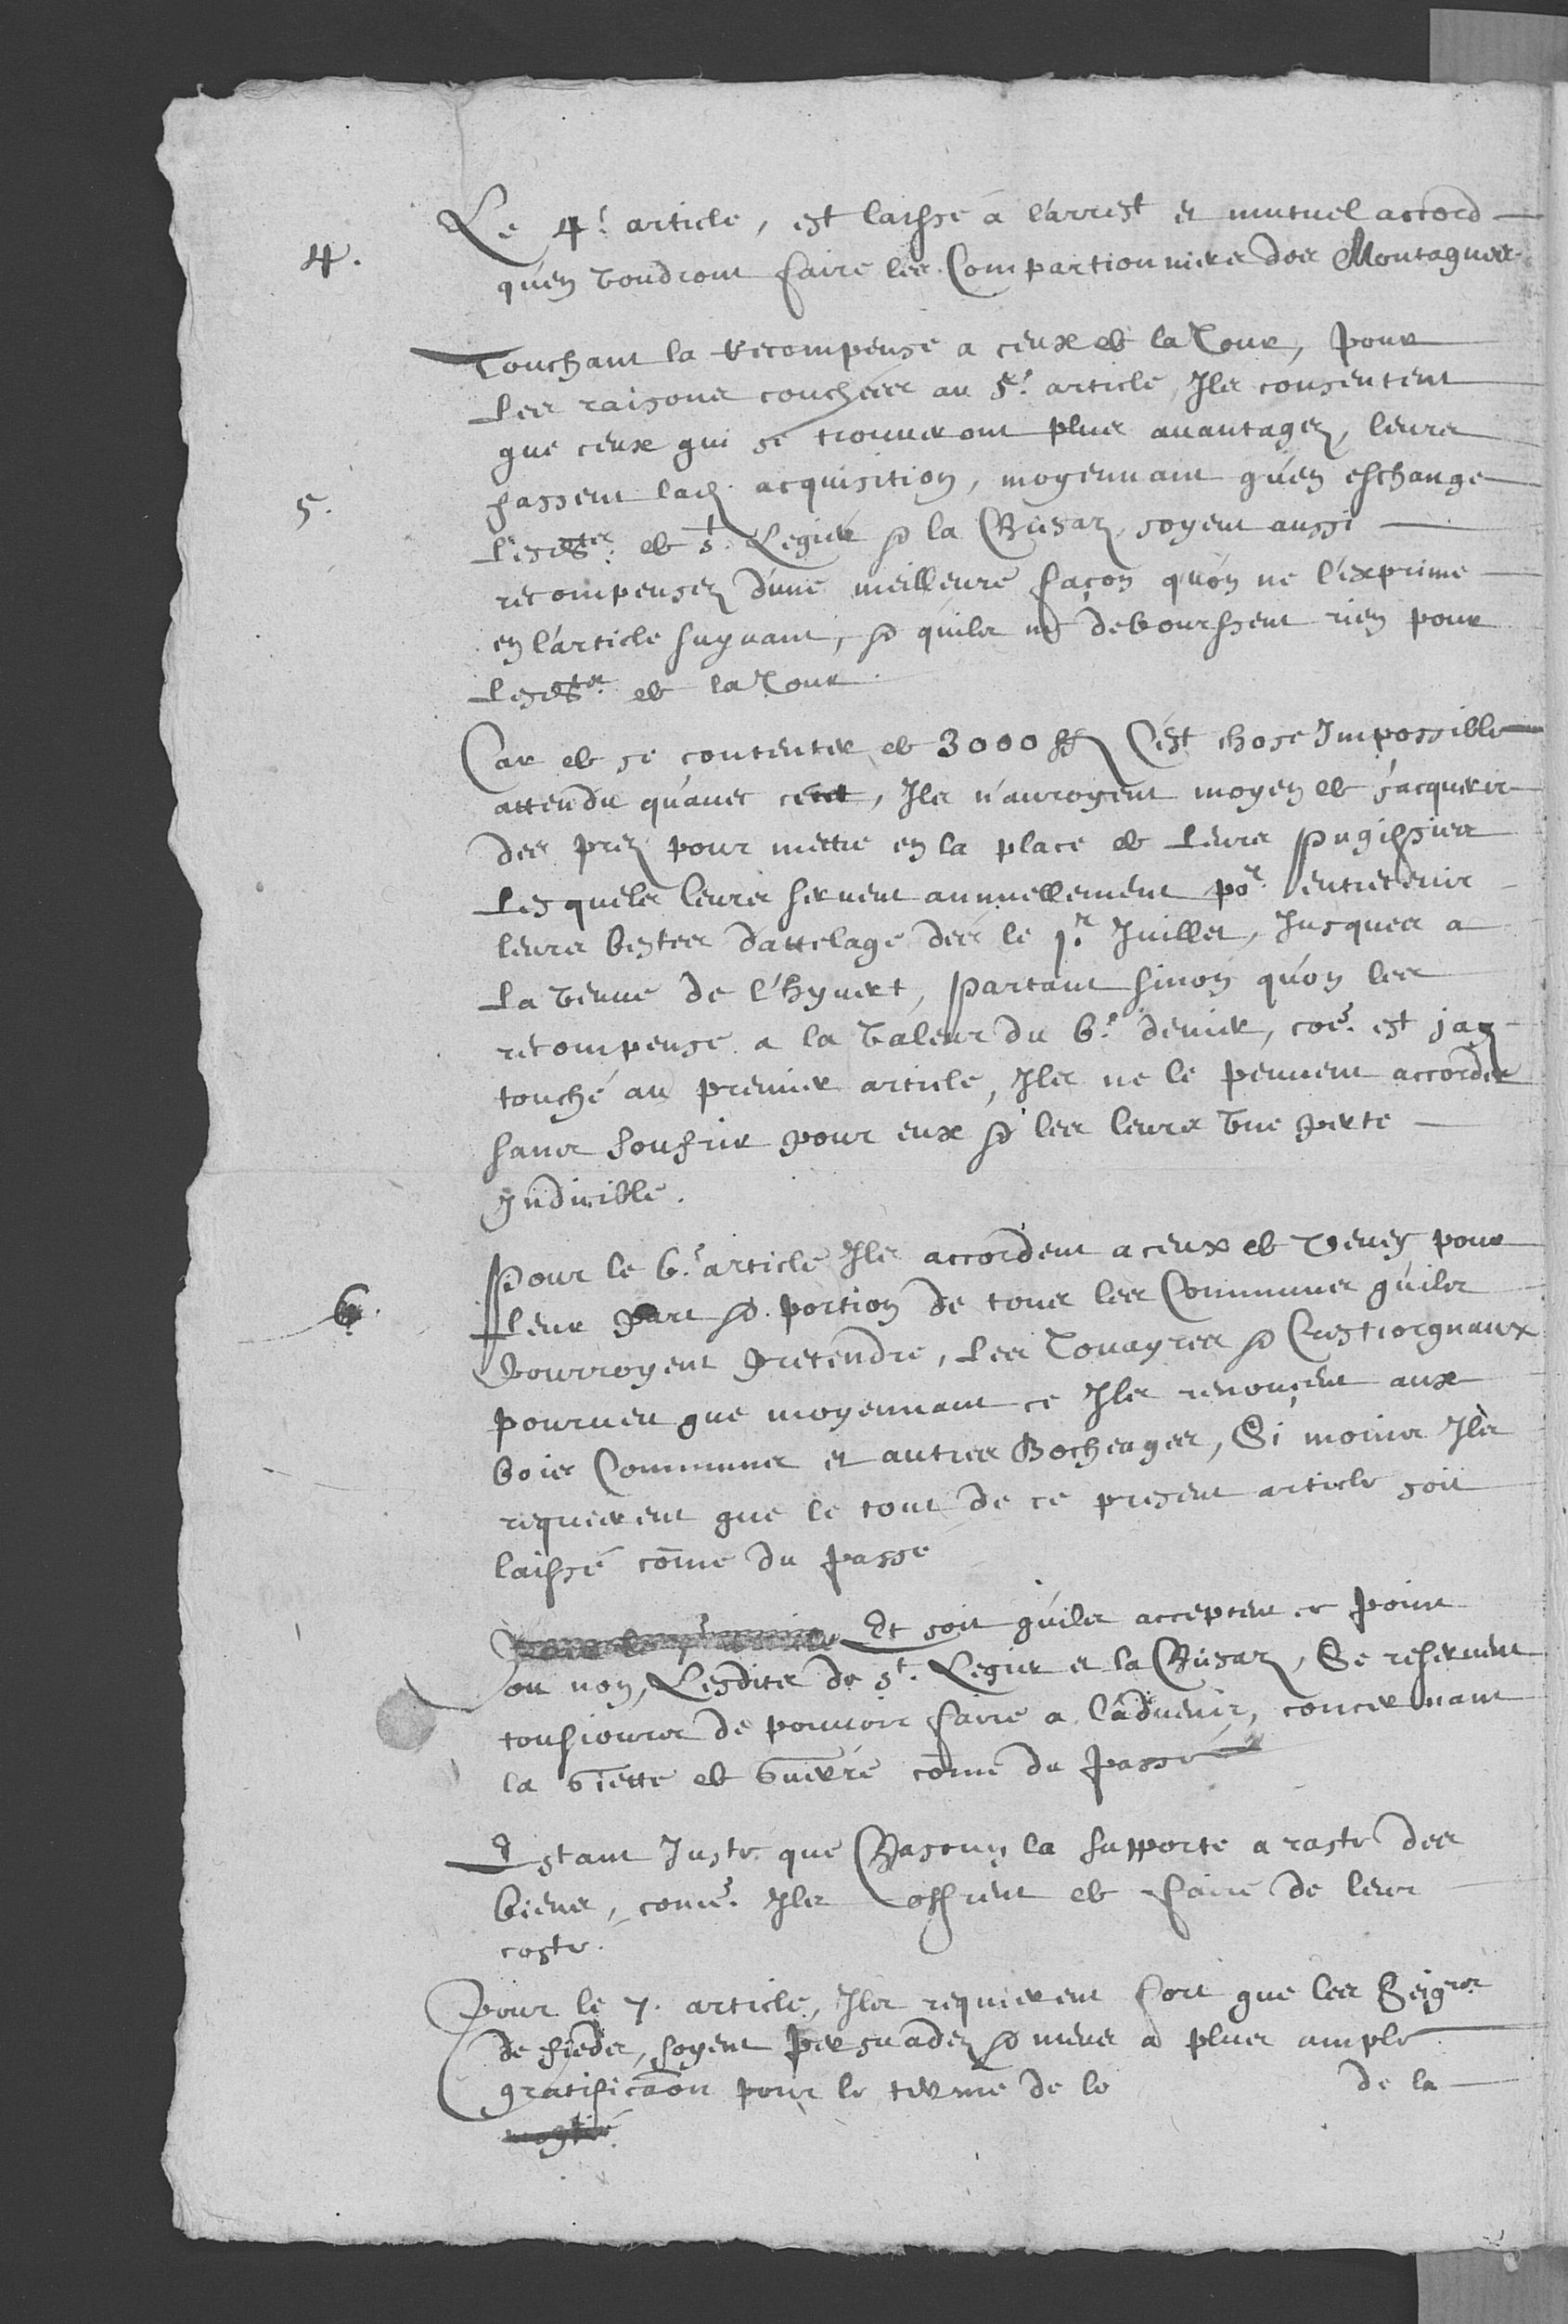 Le 4.e article, est laissé à l'arrest et mutuel accord
4.
qu'en voudront faire les Compartionniers des Montagnes.
Touchant la recompense a ceux de la Tour, pour
Les raisons couchées au 5.e article, Ils consentent
que ceux qui se trouveront plus auantagez, leurs
5.
fassent lad. acquisition, moyennant qu'en eschange
Lesdts. de St. Legier & la Chiesaz, soyent aussi
recompensez d'une meilleure façon qu'on ne l'exprime
en l'article suyuant, & quils ne deboursent rien pour
Lesdts. de la Tour.
Car de se contenter de 3000 ff C'est chose Impossible
attendu qu'auec cent, Ils n'auroyent moyen de s'acquerir
des prez pour mettre en la place de Leurs
Lesquels leurs seruent annuellement por. entretenir
leurs bestes d'attelage dès le 1.r Juillet, Jusques a
La venue de l'hyuert, partant sinon qu'on les
recompense a la valeur du 6.e denier, coe. est jaz
touché au premier article, Ils ne le peuuent accorder
sans soufrir pour eux & les leurs vne perte
Indicible.
Pour le 6.e article Ils accordent a ceux de Veuey pour
6.
Leur part & portion de tous les Communs quils
pourroyent pretendre, Les Touayres &
pourueu que moyennant ce Ils renoncent aux
bois Communs et autres Bocheages, Si moins Ils
requierent que le tout de ce present article soit
laissé come du passé
Et soit quils acceptent ce point
ou non, Lesdits de St. Legier et la Chiesaz, Se reseruent
tousiours de pouuoir faire a l'aduenir, concernant
la Giette de Guerre come du passé
Estant Juste que Chascun la supporte a raste des
biens, come. Ils offrent de faire de leur
coste.
Pour le 7. article, Ils requierent fort que les Seigrs.
de fieds, soyent persuadez & meus à plus ample
gratificaon pour le terme de le de la
moytié